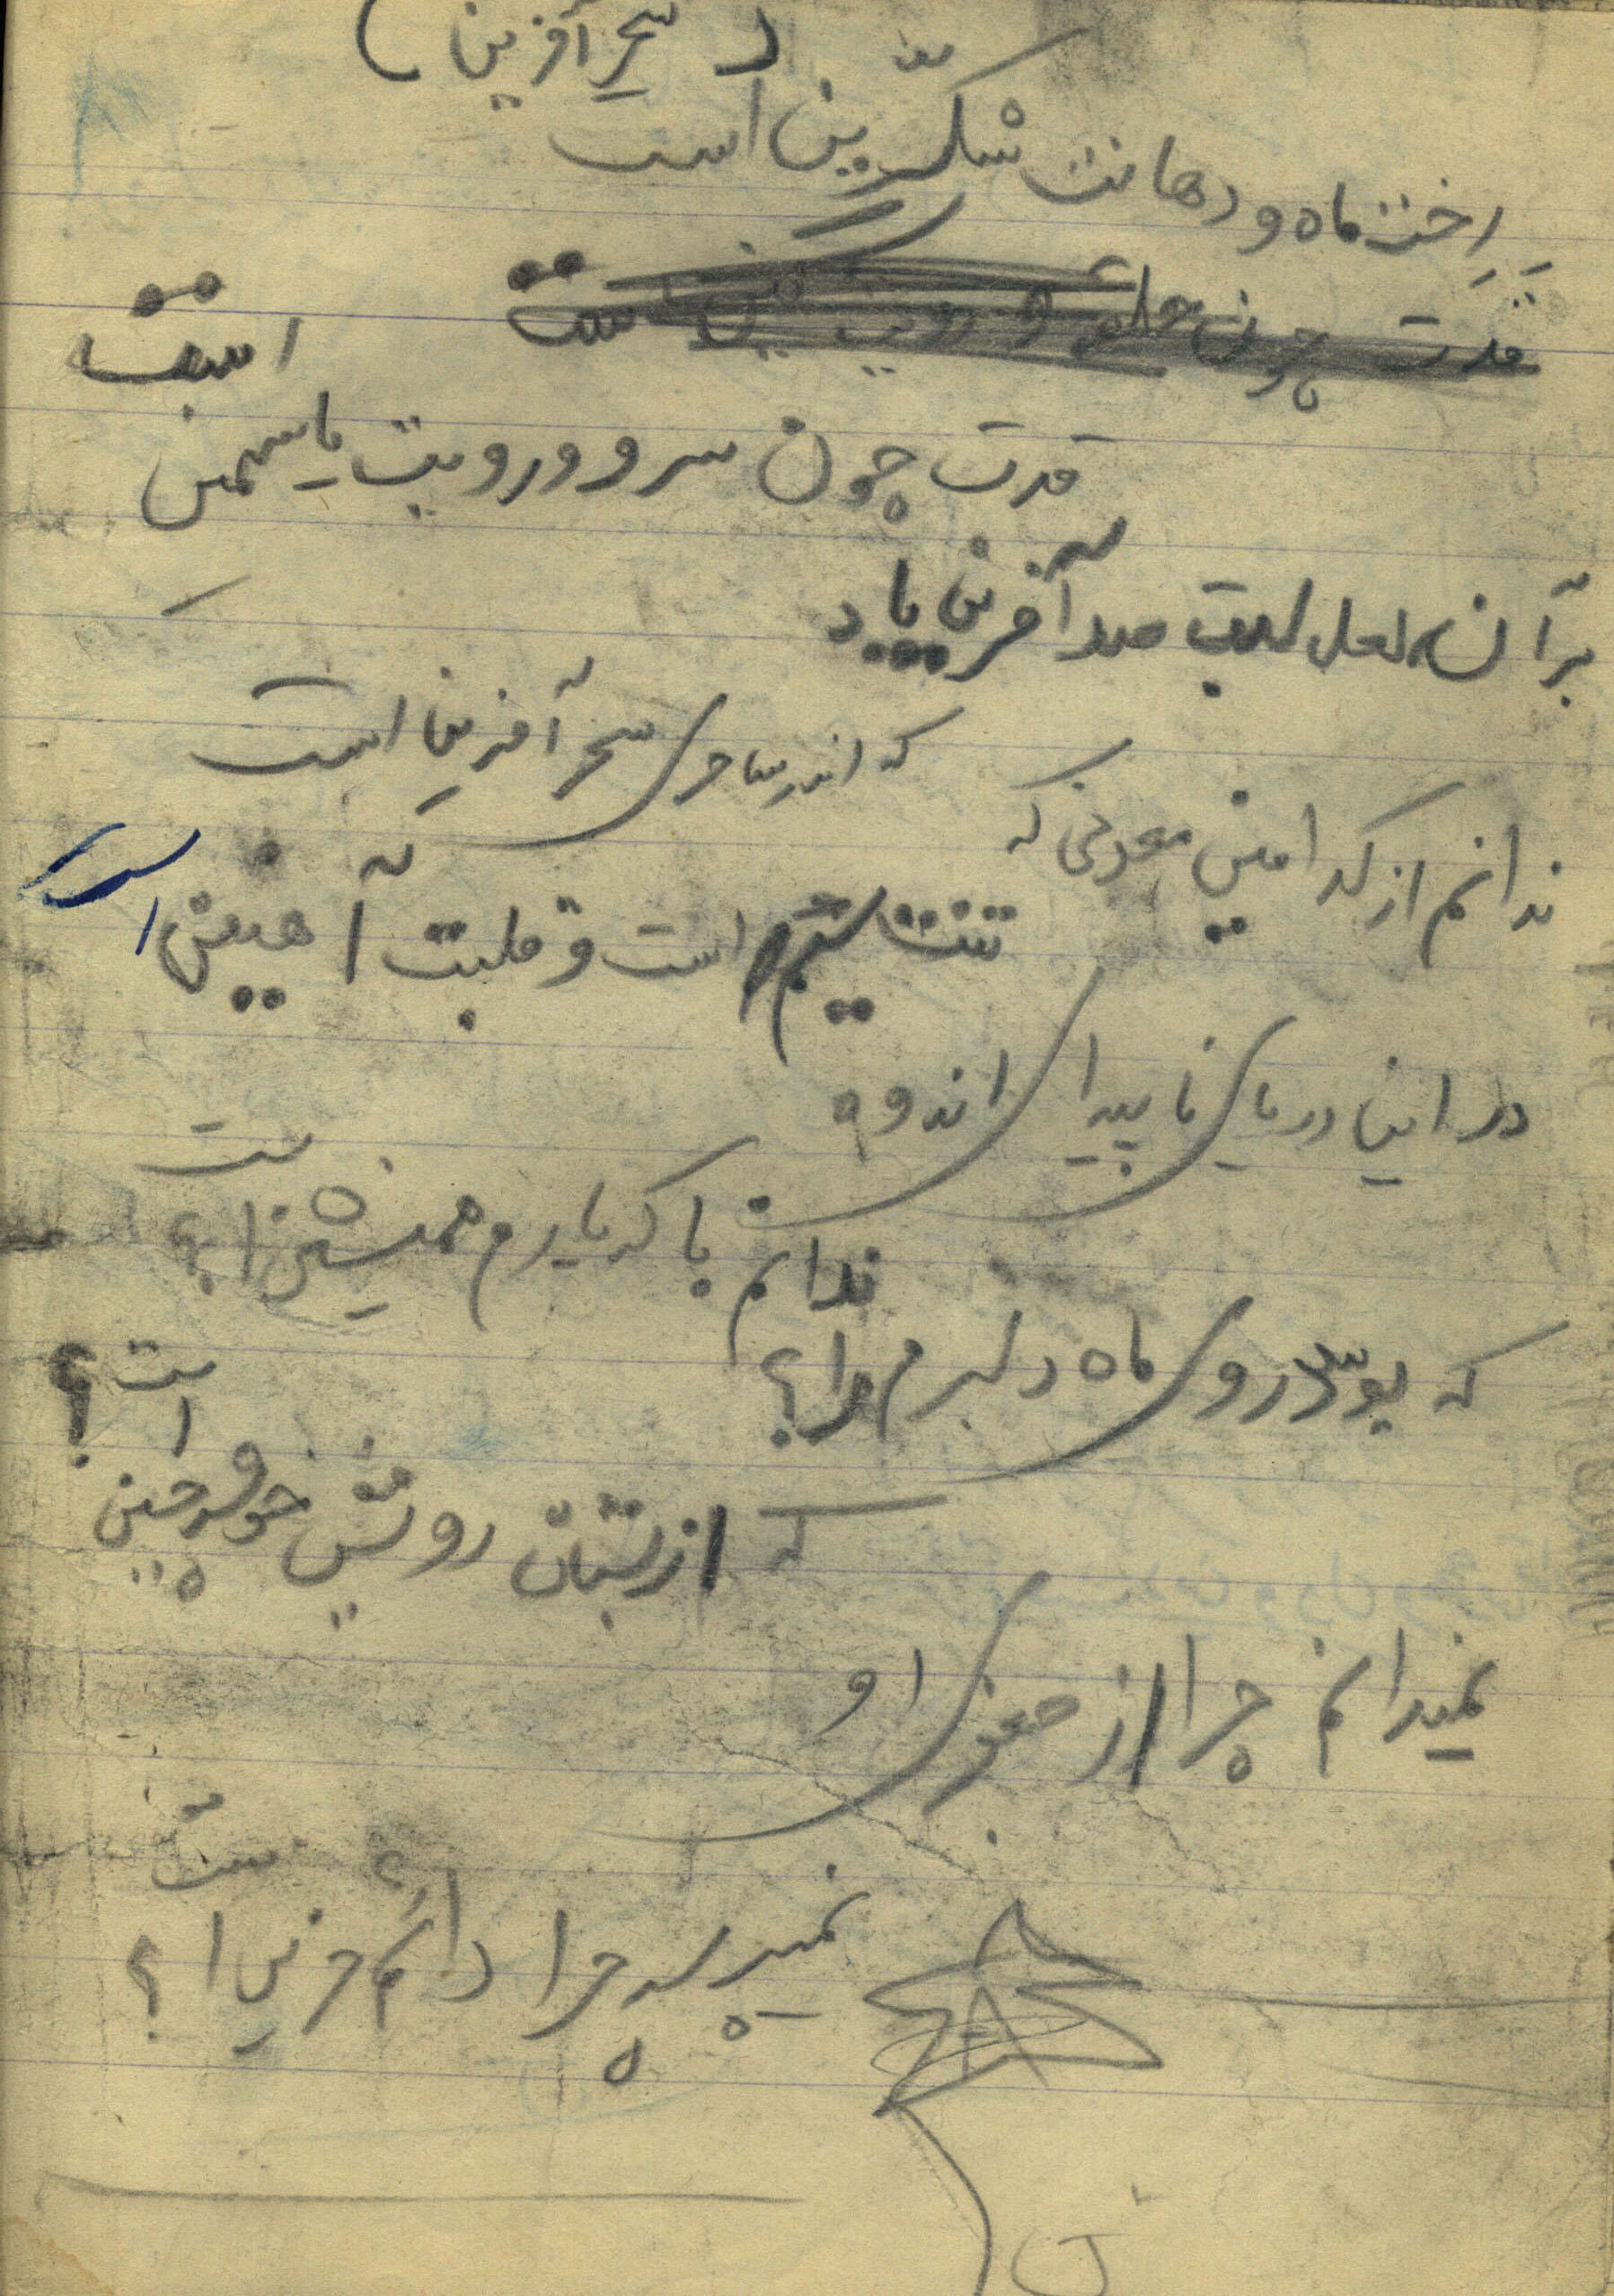 ( سحر آفرین )
رخت ماه و دهانت شکّرین است
قدت چون
قدت چون سرو و رویت یاسمین است
بر آن لعل لبت صد آفرین باد
که اندر ساحری سحر آفرین است
ندانم از کدامین معدنی که
تنت سیم است و قلبت آهنین است
در این دریای ناپیدای اندوه
ندانم با که یارم همنشین است؟
که بوسد روی ماه دلبرم را؟
که از بستان رویش خوشه چین است؟
نمیدانم چرا از صفوی او
نمیپرسد چرا دائم حزین است؟